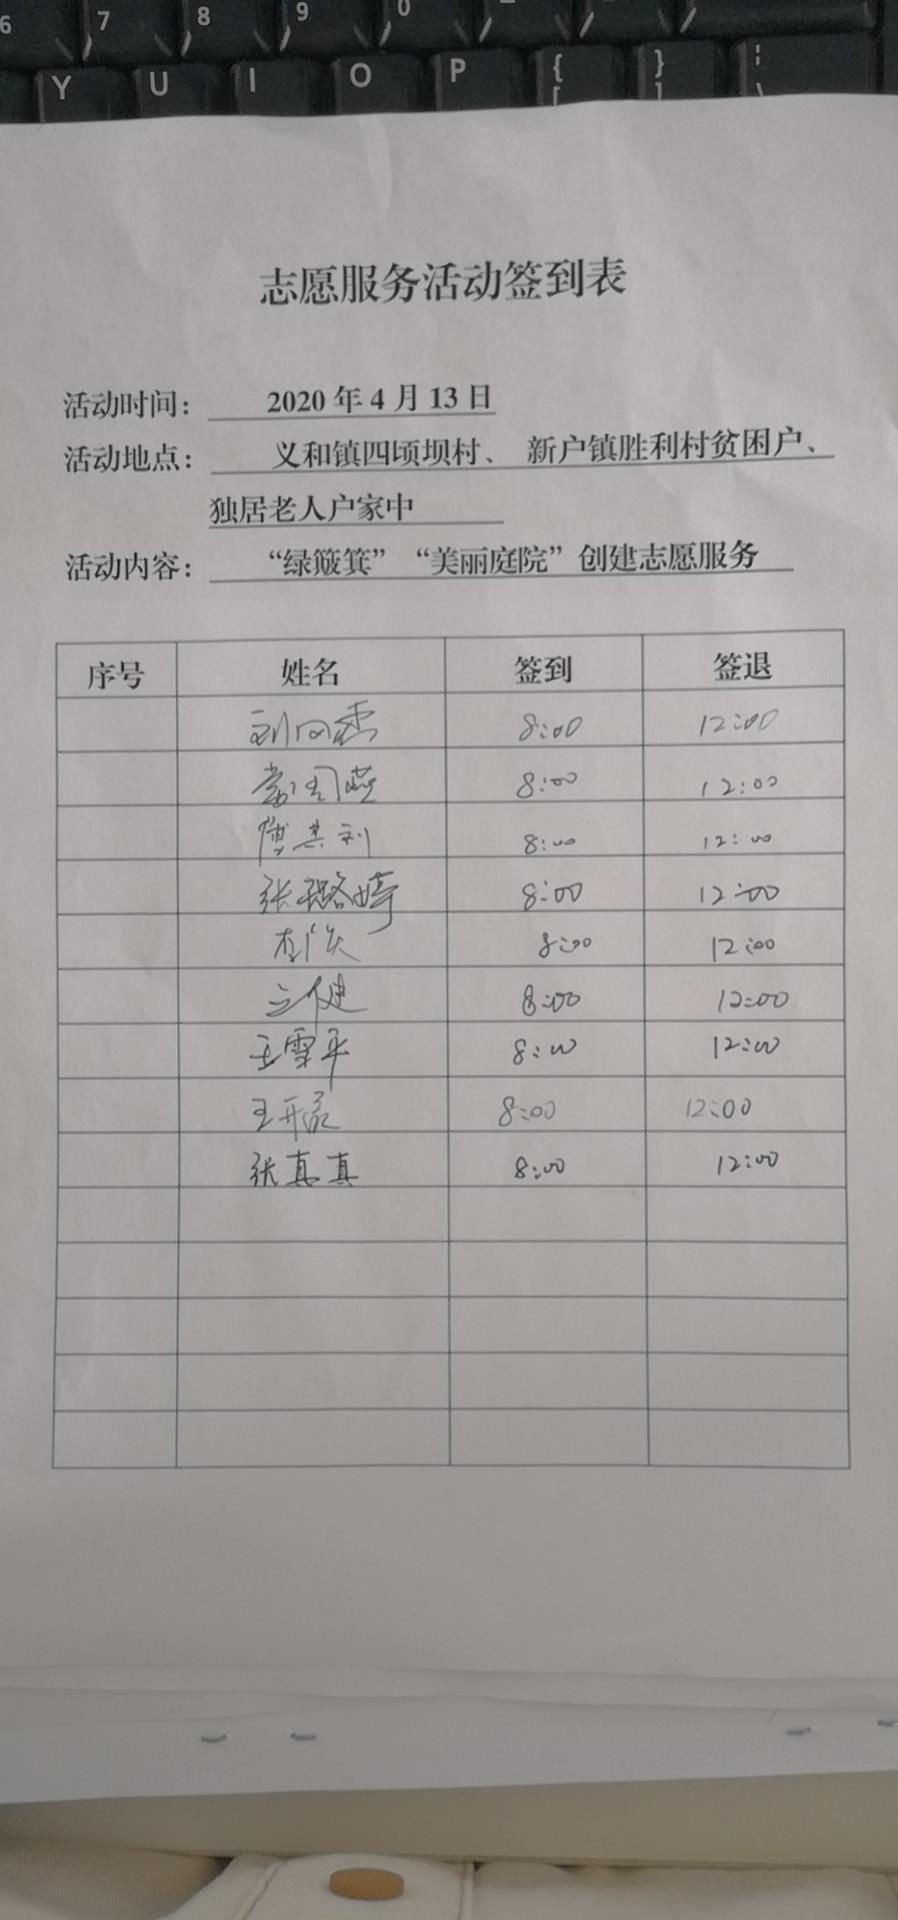 6 7 8 9 0
Y U I O P { [ } ] ¦ \
志愿服务活动签到表
活动时间: 2020 年 4 月 13 日
活动地点: 义和镇四顷坝村、 新户镇胜利村贫困户、
独居老人户家中
活动内容: “绿簸箕”“美丽庭院”创建志愿服务
序号 姓名 签到 签退
8:00 12:00
8:00 12:00
傅其利 8:00 12:00
张璐婷 8:00 12:00
8:00 12:00
8:00 12:00
王雪平 8:00 12:00
8:00 12:00
张真真 8:00 12:00